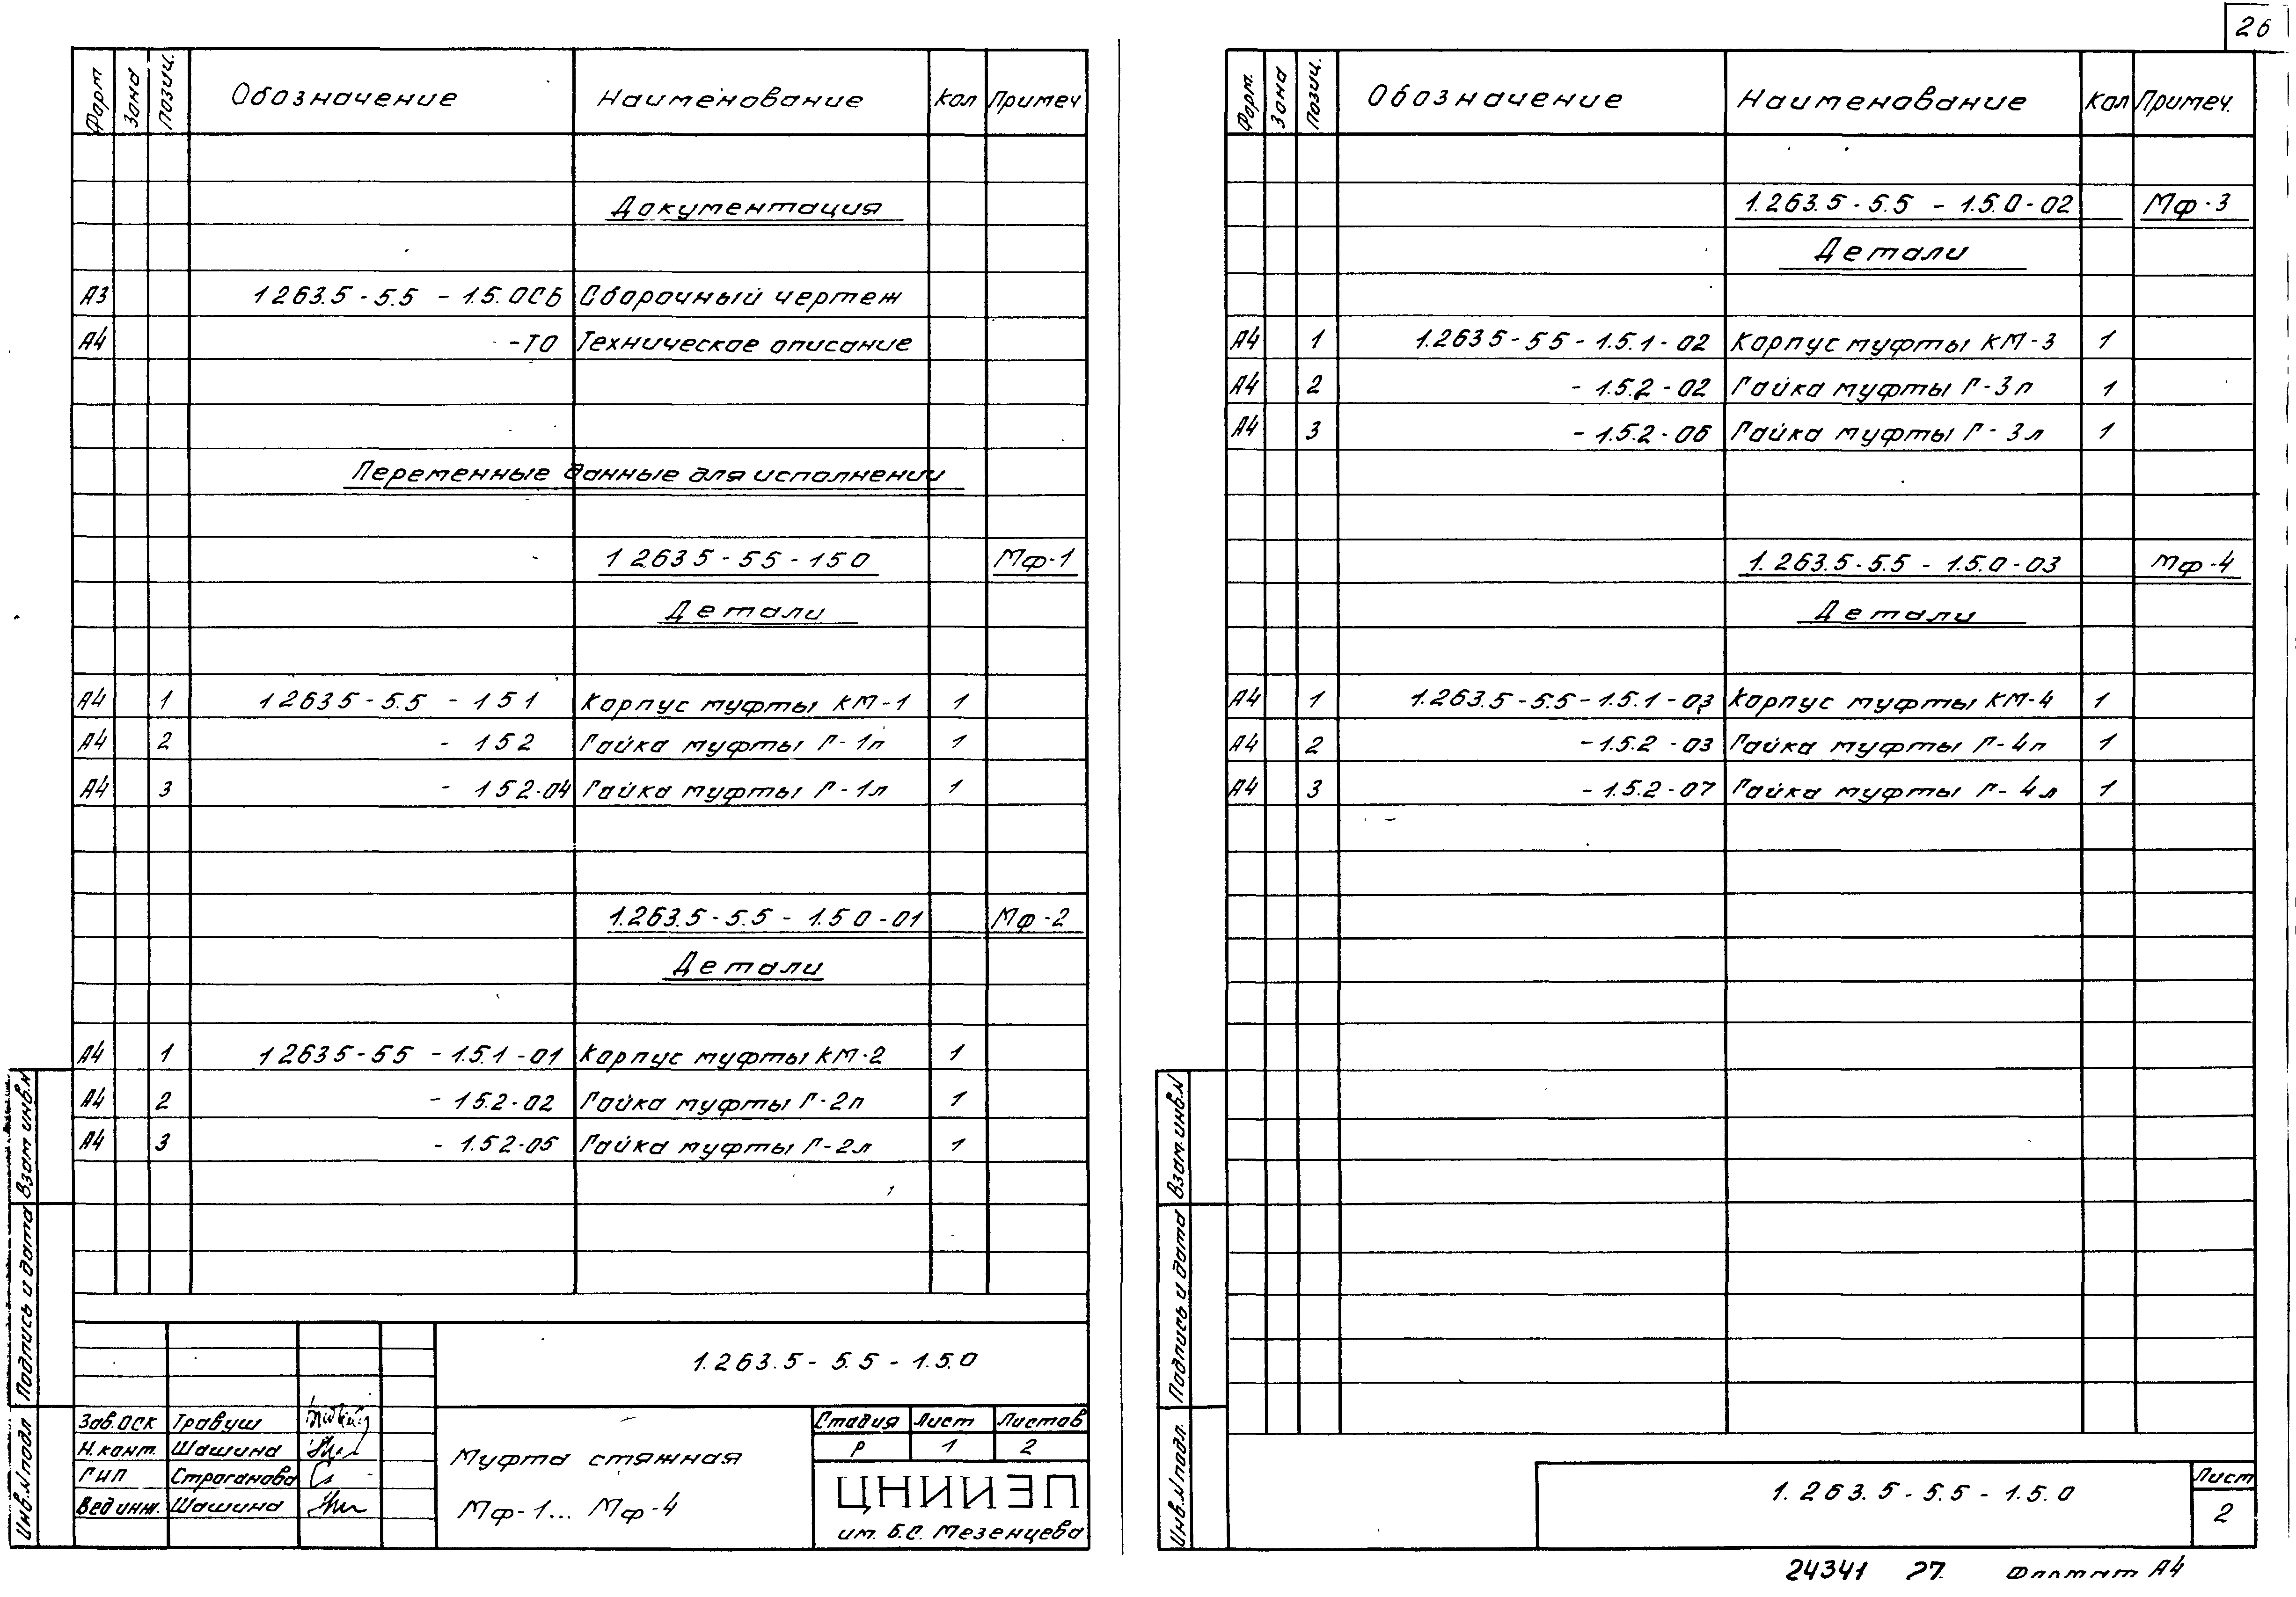 26
Форм Зона Позиц. Обозначение Наименование Кол Примеч
Документация
А3 1263.5-5.5 - 1.5.0СБ Сборочный чертеж
А4 -ТО Техническое описание
Переменные данные для исполнении
1 263 5 - 55 - 150 Мф-1
Детали
А4 1 1 263 5 - 5.5 - 151 Корпус муфты КМ-1 1
А4 2 - 152 Гайка муфты Г-1п 1
А4 3 - 152-04 Гайка муфты Г-1л 1
1.263.5-5.5 - 1.5 0-01 Мф-2
Детали
А4 1 1 2635-55 - 1.5.1-01 Корпус муфты КМ-2 1
А4 2 - 15.2-02 Гайка муфты Г-2п 1
А4 3 - 1.52-05 Гайка муфты Г-2л 1
1.263.5-5.5-1.5.0
Зав.ОСК Травуш
Н.конт. Шашина
ГИП Строганова
Вед инж. Шашина
Муфта стяжная
Мф-1... Мф-4
Стадия Лист Листов
Р 1 2
ЦНИИЭП
им. Б.С. Мезенцева
Инв.N подл Подпись и дата Взам инв.N
Форм. Зона Позиц. Обозначение Наименование Кол Примеч.
1.263.5-5.5 - 1.5.0-02 Мф-3
Детали
А4 1 1.263 5-55-1.5.1-02 Корпус муфты КМ-3 1
А4 2 - 1.5.2-02 Гайка муфты Г-3п 1
А4 3 - 1.5.2-06 Гайка муфты Г-3л 1
1.263.5-5.5 - 1.5.0-03 Мф-4
Детали
А4 1 1.263.5-5.5-1.5.1-03 Корпус муфты КМ-4 1
А4 2 -1.5.2-03 Гайка муфты Г-4п 1
А4 3 -1.5.2-07 Гайка муфты Г-4л 1
Инв.N подл. Подпись и дата Взам.инв.N
1.263.5-5.5-1.5.0
Лист
2
24341 27. Формат А4